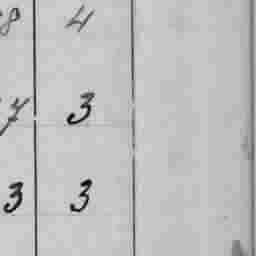 8 4
7 3
3 3